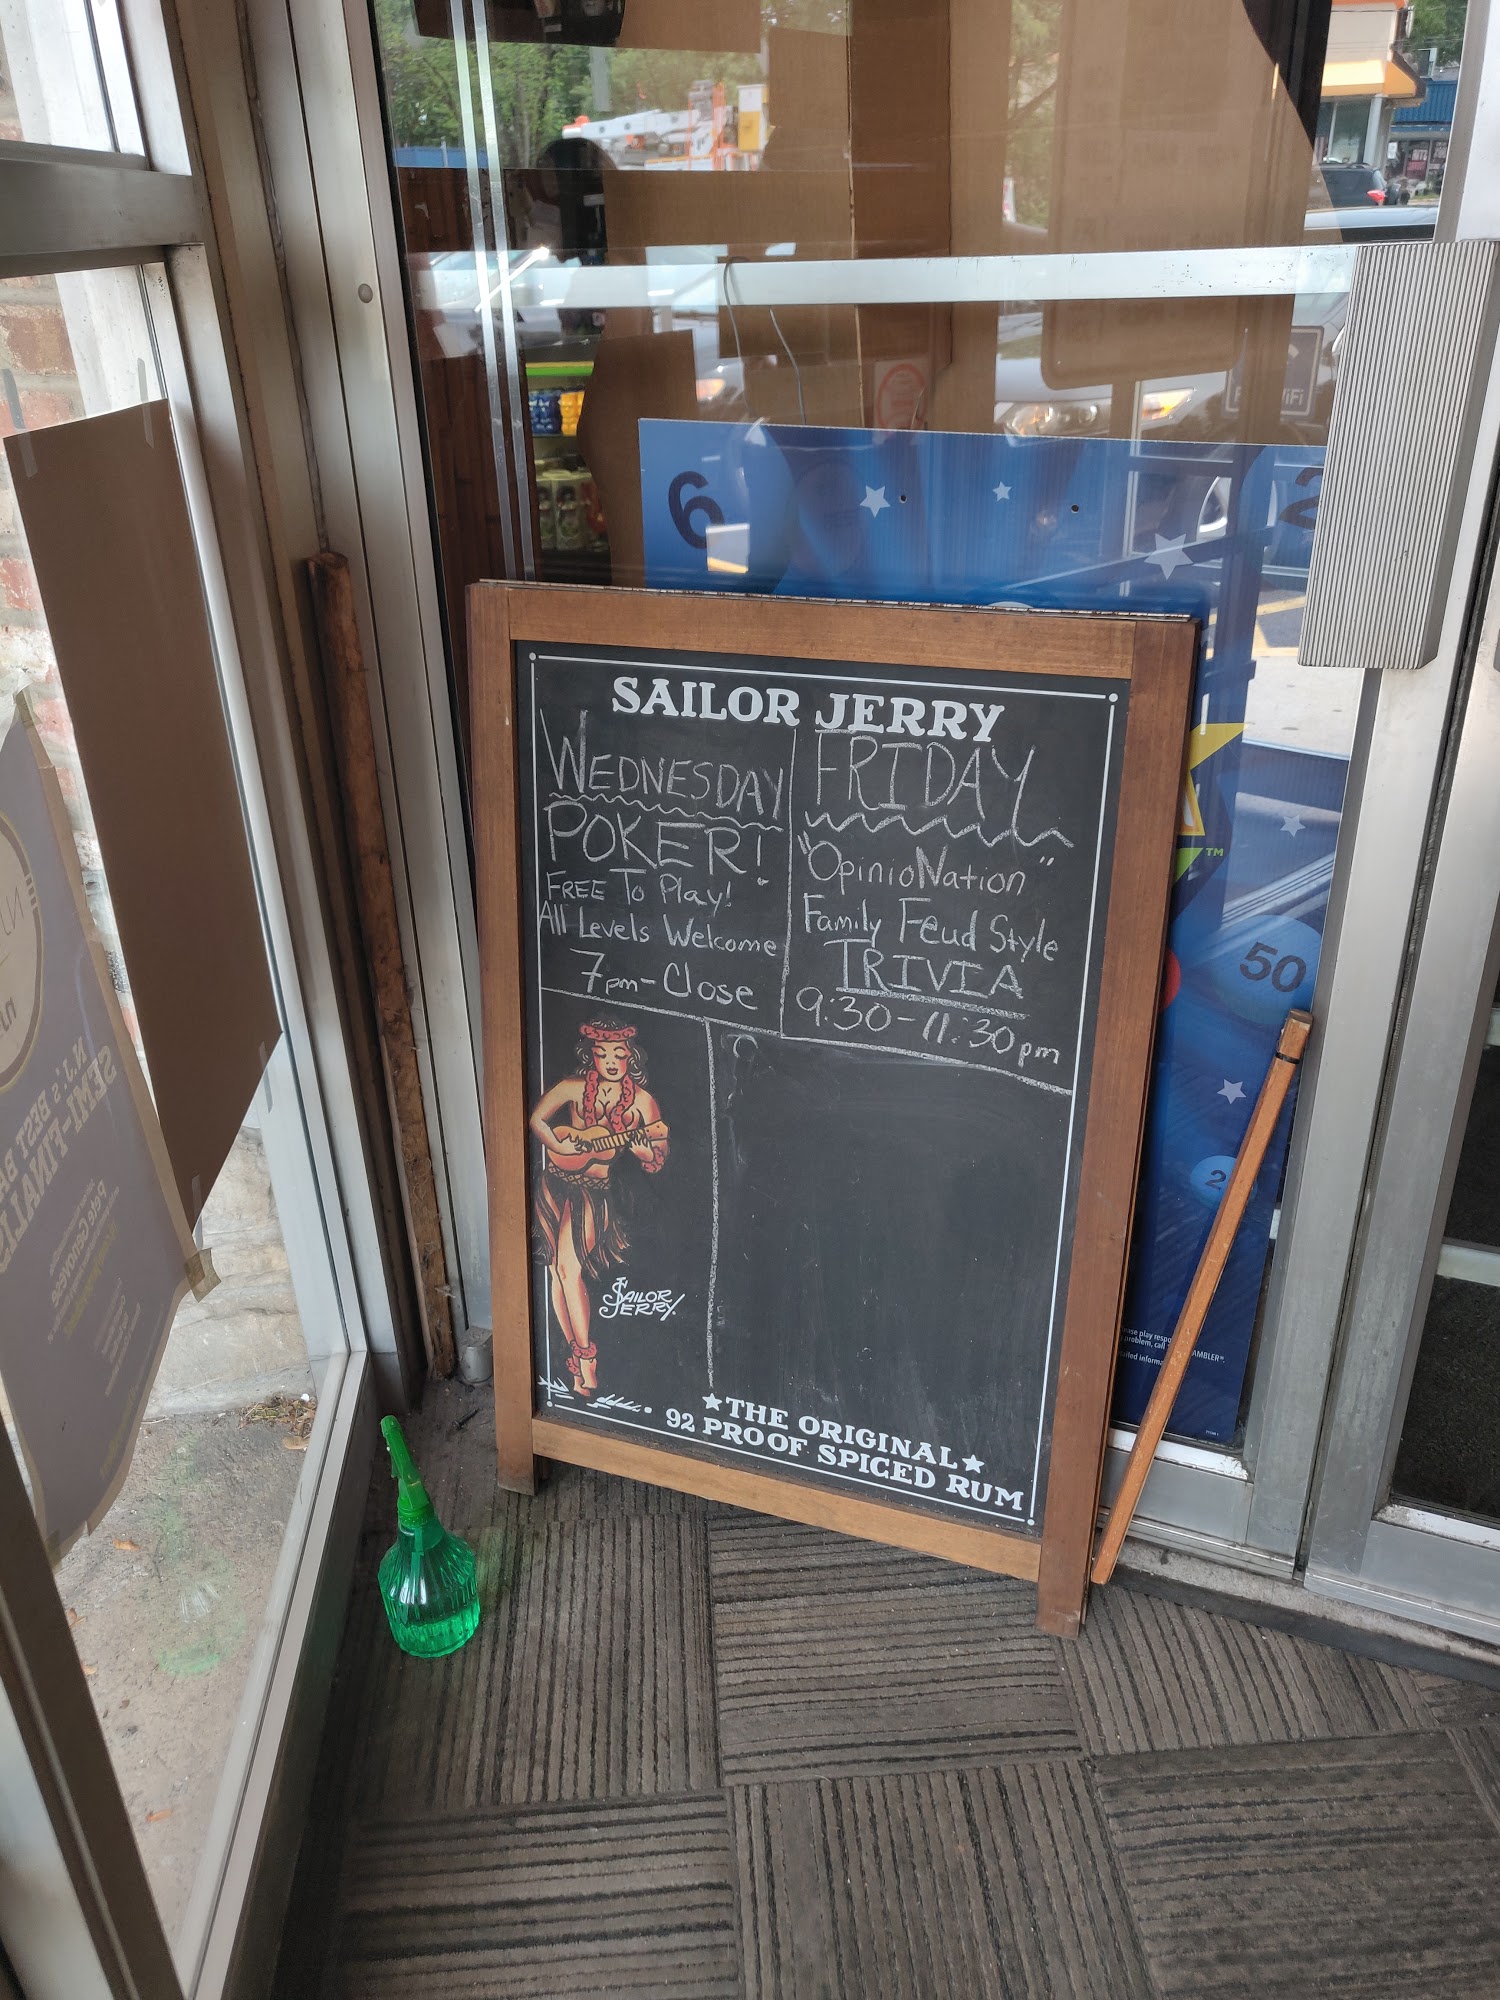 SAILOR JERRY
WEDNESDAY
POKER!
FREE To Play!
All Levels Welcome
7pm-Close
FRIDAY
"OpinioNation"
Family Feud Style
TRIVIA
9:30-11:30pm
SAILOR
JERRY.
★THE ORIGINAL★
92 PROOF SPICED RUM
6
2
50
2
TM
NJ
N.J.'S BEST
SEMI-FINALS
Pete Genovese